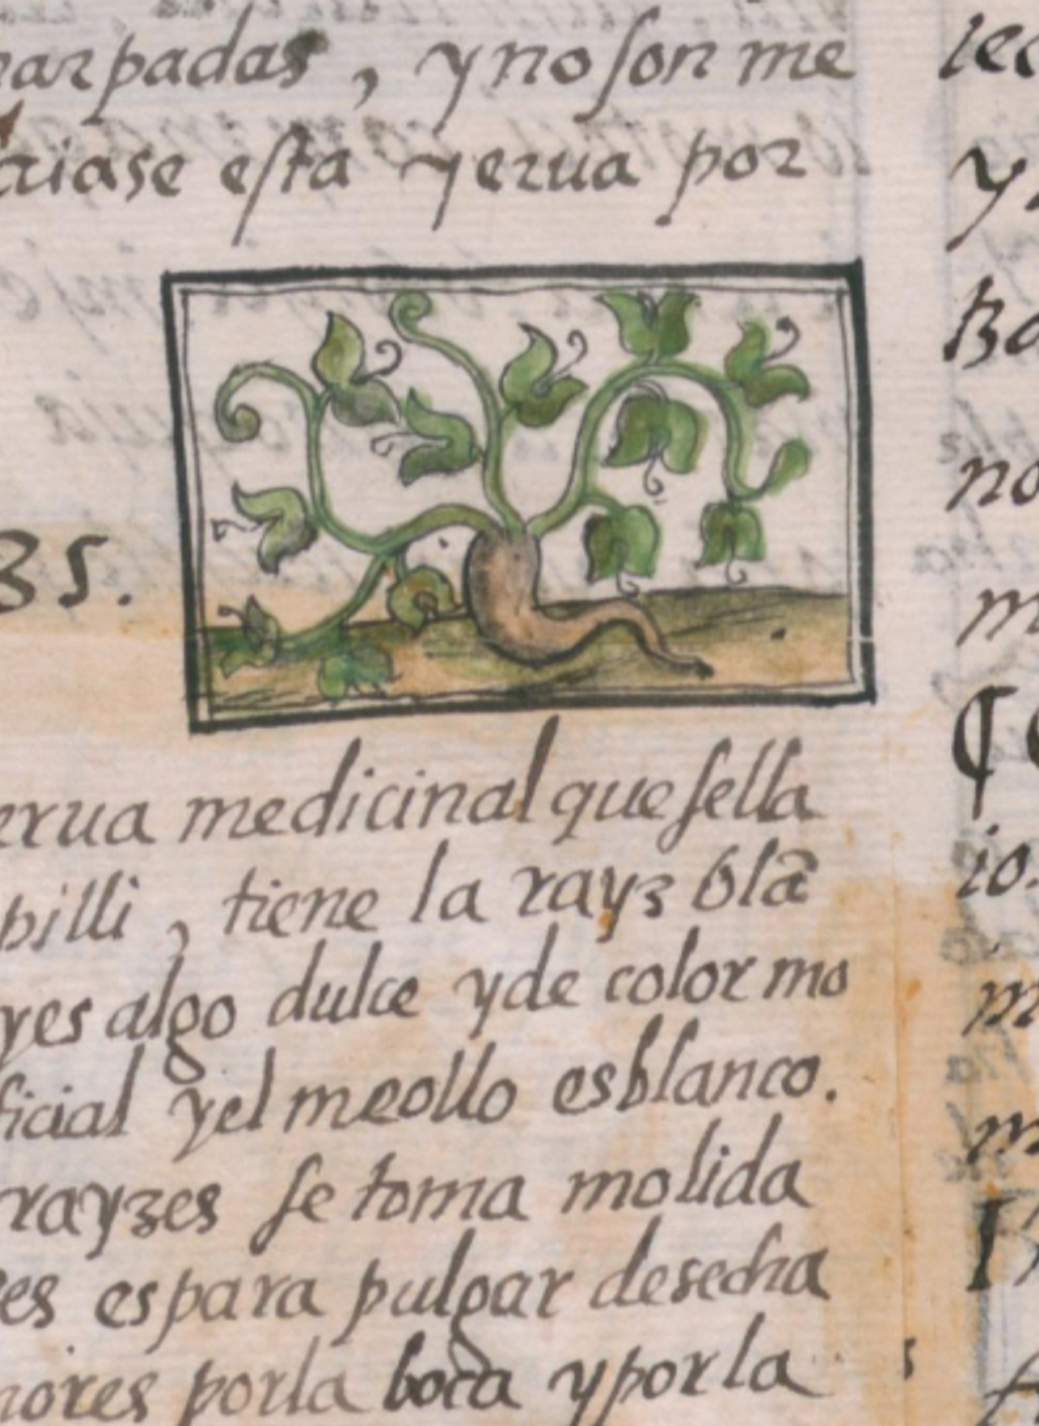 arpadas, y no son me
criase esta yerua por
35.
erua medicinal que sella
pilli, tiene la rayz blā
yes algo dulce y de color mo
ficial y el meollo es blanco.
rayzes se toma molida
es es para pulgar desecha
mores por la boca y por la
y
no
m
¶
io.
m
m